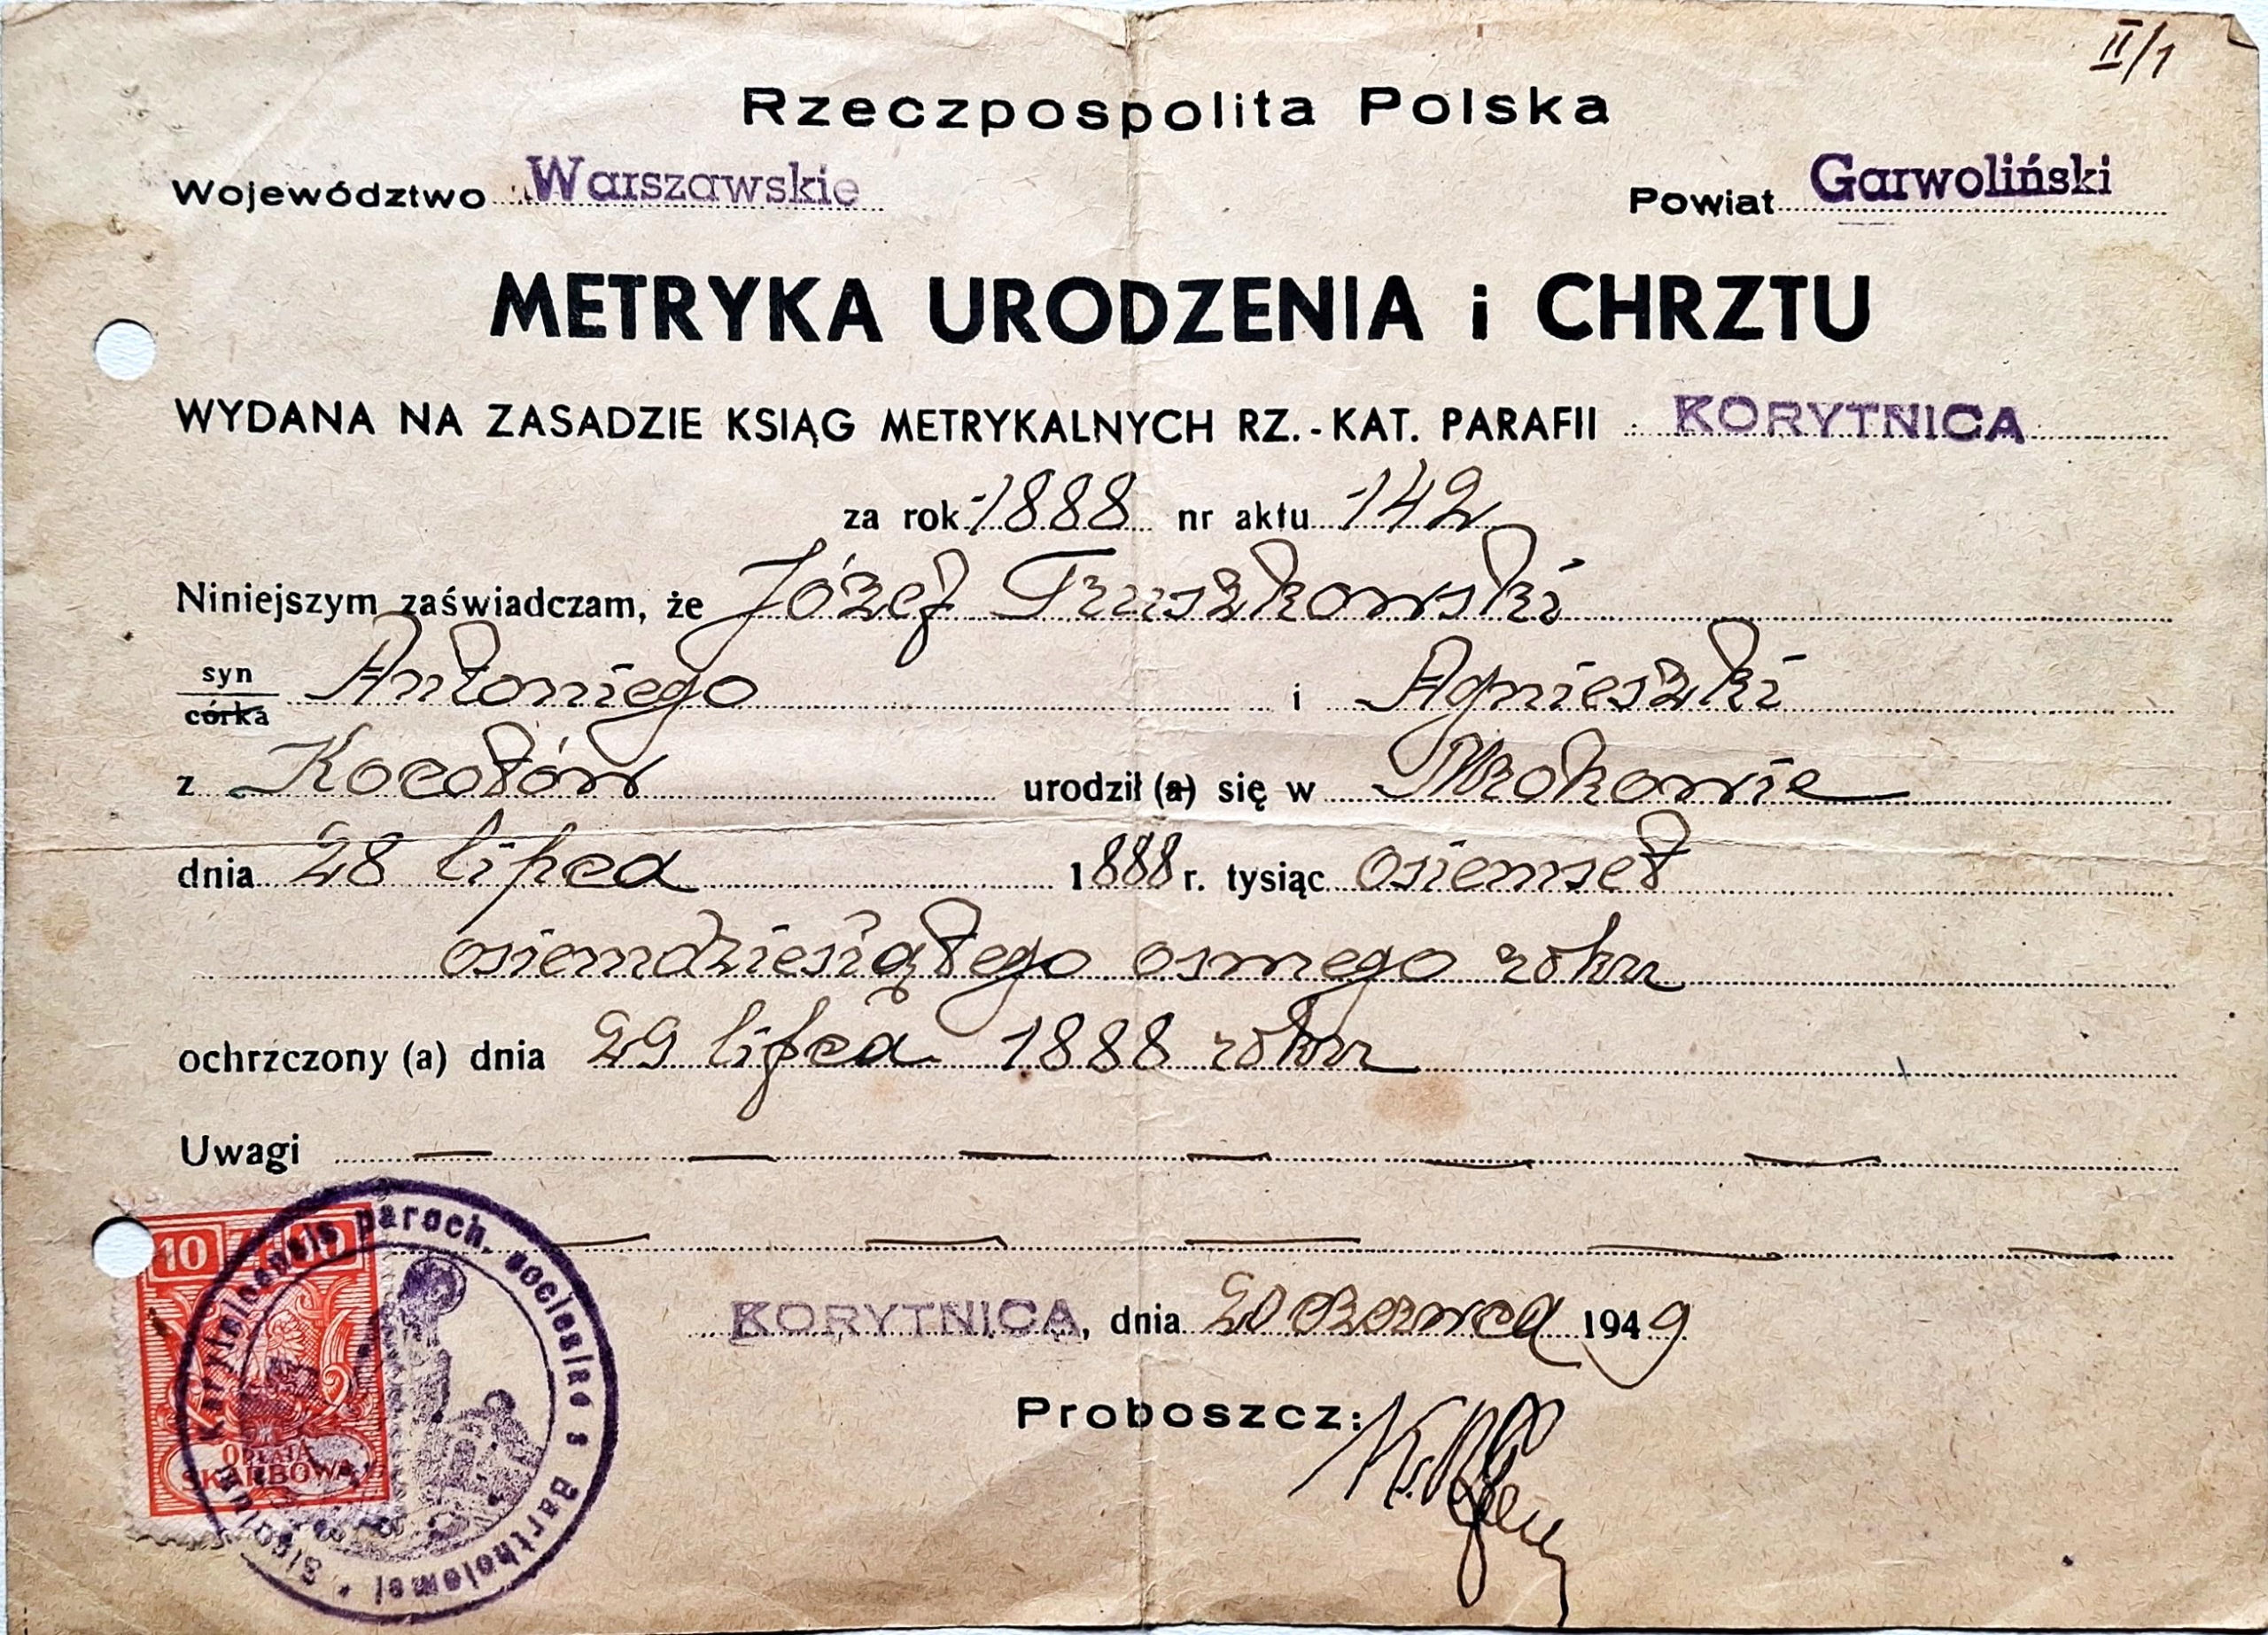 II/1
Rzeczpospolita Polska
Województwo Warszawskie Powiat Garwoliński
METRYKA URODZENIA i CHRZTU
WYDANA NA ZASADZIE KSIĄG METRYKALNYCH RZ.-KAT. PARAFII KORYTNICA
za rok 1888 nr aktu 142
Niniejszym zaświadczam, że Józef Truszkowski
syn
córka Antoniego i Agnieszki
z Kocotów urodził (a) się w Mrokowie
dnia 28 lipca 1888 r. tysiąc osiemset
osiemdziesiątego osmego roku
ochrzczony (a) dnia 29 lipca 1888 roku
Uwagi
10 Zł 10
OPŁATA
SKARBOWA
Sigillum Korytnicensis paroch. ecclesiae s Bartholomei *
KORYTNICA, dnia 20 czerwca 1949
Proboszcz: